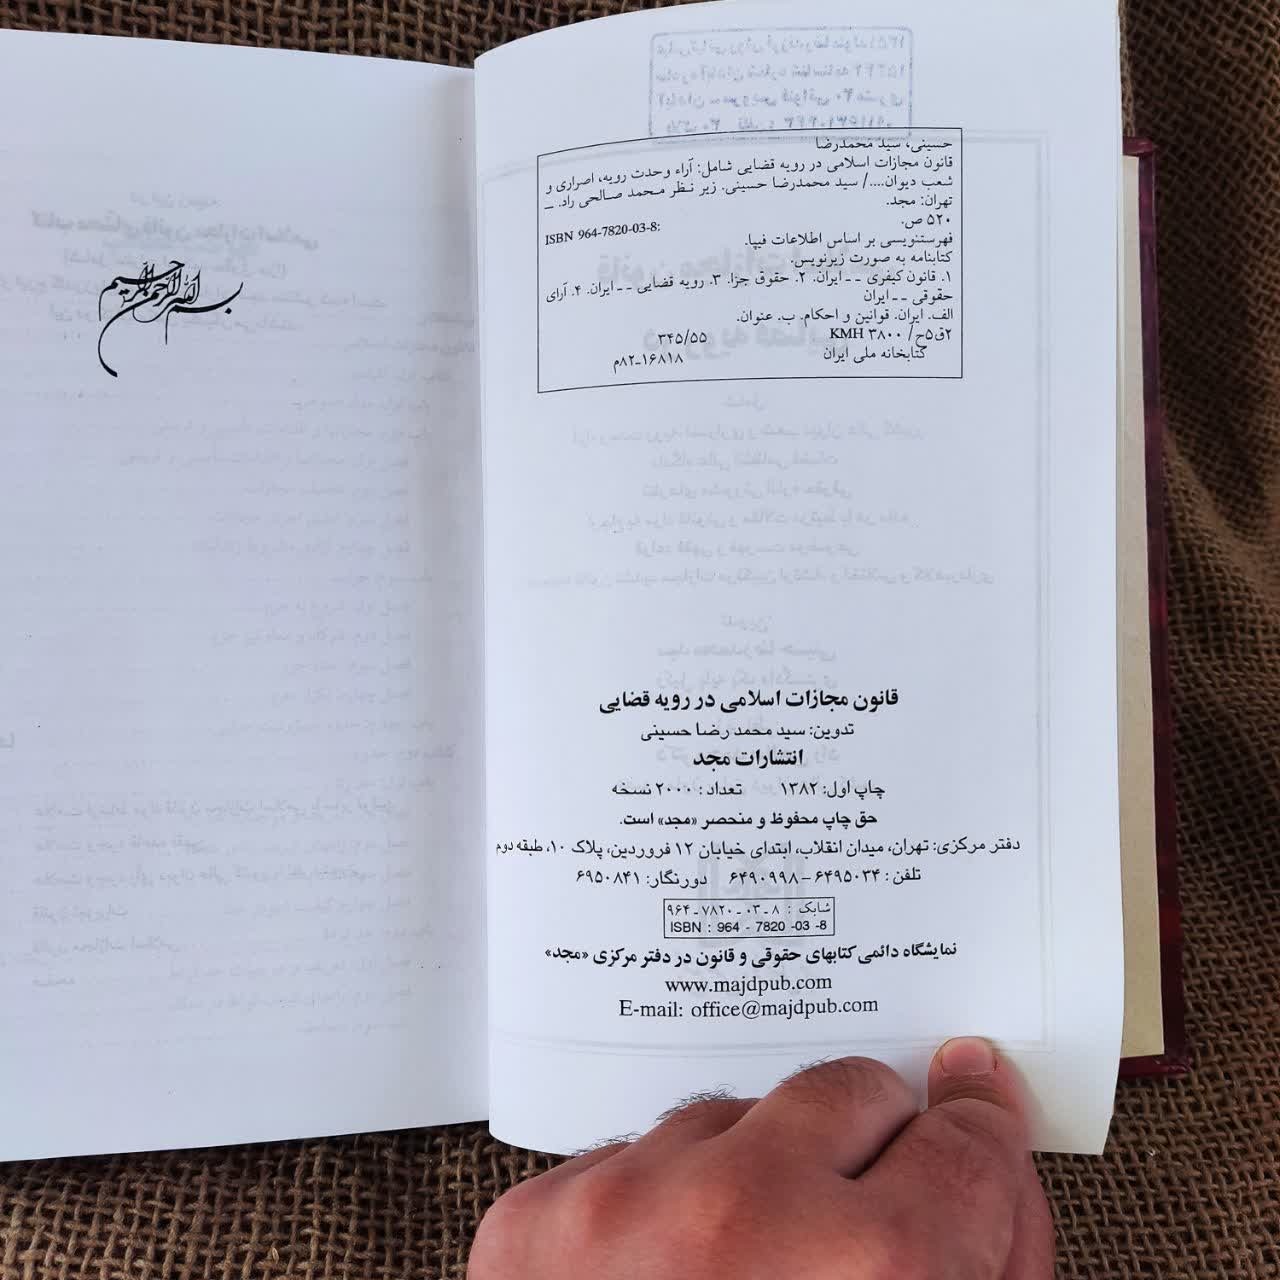 حسینی، سید محمدرضا
قانون مجازات اسلامی در رویه قضایی شامل: آراء وحدت رویه، اصراری و
شعب دیوان..../ سید محمدرضا حسینی. زیر نظر محمد صالحی راد. ـ
تهران: مجد.
۵۲۰ ص.
ISBN 964-7820-03-8:
فهرستنویسی بر اساس اطلاعات فیپا.
کتابنامه به صورت زیرنویس.
۱. قانون کیفری ـ ـ ایران. ۲. حقوق جزا. ۳. رویه قضایی ـ ـ ایران. ۴. آرای
حقوقی ـ ـ ایران
الف. ایران. قوانین و احکام. ب. عنوان.
۲ق۵ح/ ۳۸۰۰ KMH ۳۴۵/۵۵
کتابخانه ملی ایران ۱۶۸۱۸ـ۸۲م
قانون مجازات اسلامی در رویه قضایی
تدوین: سید محمد رضا حسینی
انتشارات مجد
چاپ اول: ۱۳۸۲ تعداد: ۲۰۰۰ نسخه
حق چاپ محفوظ و منحصر «مجد» است.
دفتر مرکزی: تهران، میدان انقلاب، ابتدای خیابان ۱۲ فروردین، پلاک ۱۰، طبقه دوم
تلفن: ۶۴۹۵۰۳۴ – ۶۴۹۰۹۹۸ دورنگار: ۶۹۵۰۸۴۱
شابک: ۸ ـ ۰۳ ـ ۷۸۲۰ ـ ۹۶۴
ISBN : 964 - 7820 -03 -8
نمایشگاه دائمی کتابهای حقوقی و قانون در دفتر مرکزی «مجد»
www.majdpub.com
E-mail: office@majdpub.com
بسم الله الرحمن الرحیم